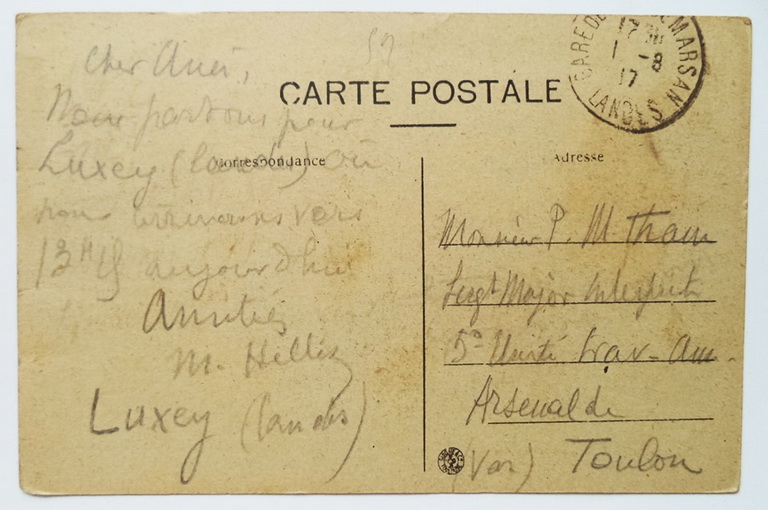 52
CARTE POSTALE
GARE DE MARSAN
1 -8
17
LANDES
Correspondance
Adresse
Cher Ami,
Nous partons pour
Luxey (Landes) où
nous arriverons vers
13H aujourd'hui
Amitiés
M.
Luxey (Landes)
Monsieur P. M. Tham
Sergt Major Interprète
5e Unité Trav-Am.
Arsenal de
(Var) Toulon